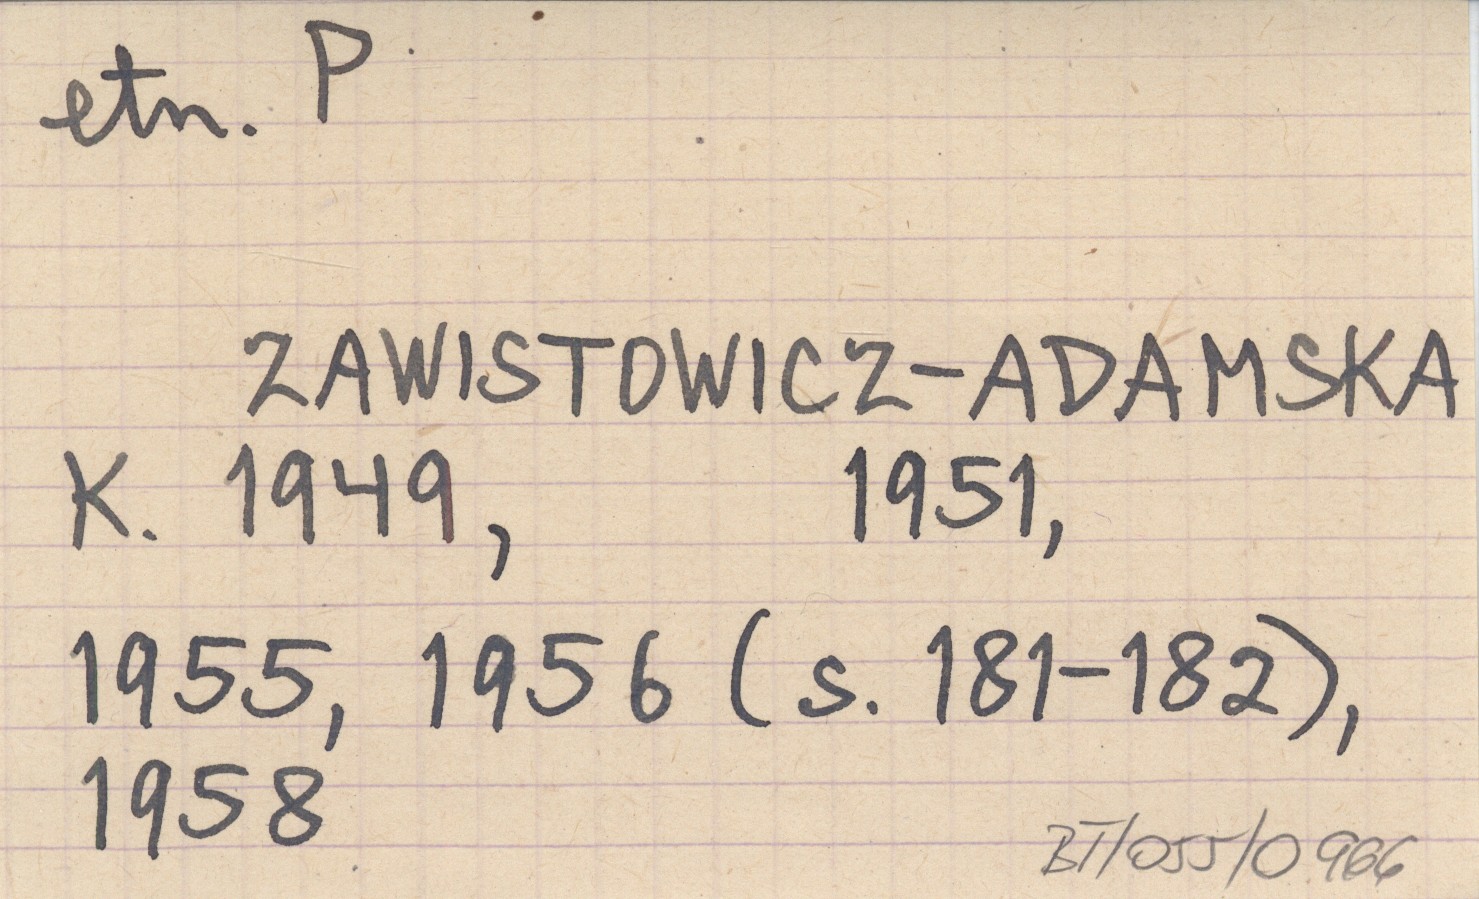 etn. P
ZAWISTOWICZ-ADAMSKA
K. 1949, 1951,
1955, 1956 (s. 181-182),
1958
BT/055/0966